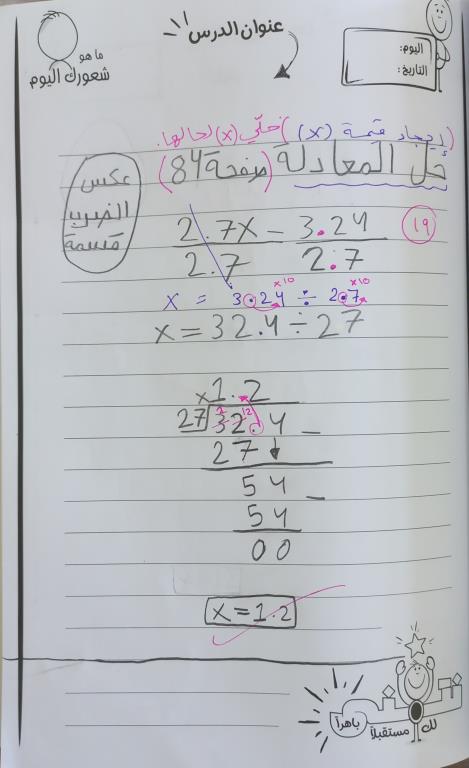 عنوان الدرس
ما هو
شعورك اليوم
اليوم:
التاريخ:
(إيجاد قيمة (x)) خلّي (x) لحالها.
حل المعادلة (صفحة 84)
عكس
الضرب
قسمة
19
2.7x = 3.24
2.7 2.7
x10 x10
x = 3.24 ÷ 2.7
x = 32.4 ÷ 27
x 1.2
27 32.4 –
2 12
27
54 –
54
00
x = 1.2
لك مستقبلاً باهراً